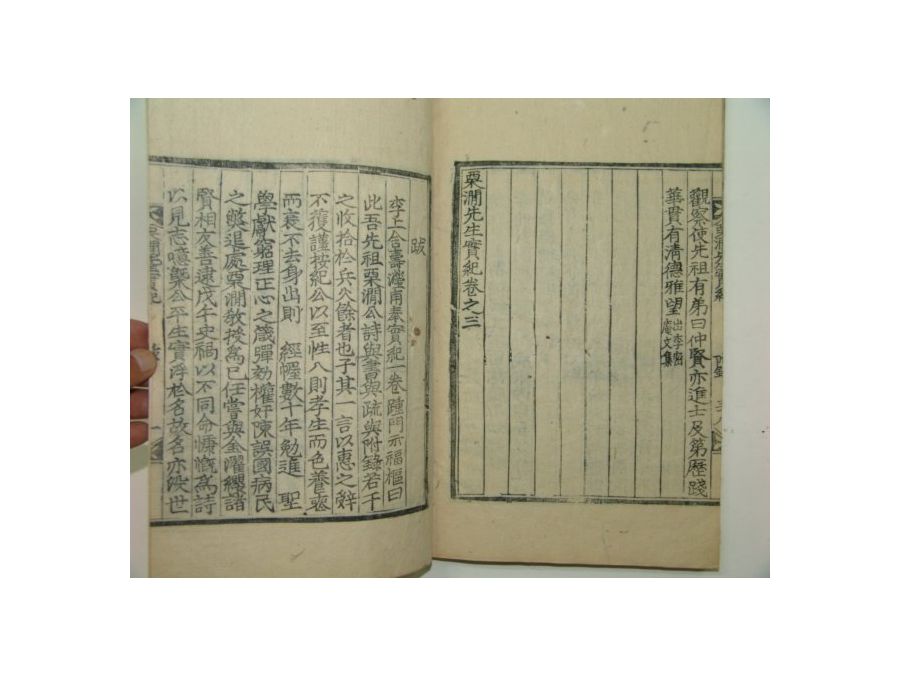 觀察使先祖有弟曰仲賢亦進士及第歷踐
華貫有清德雅望
出李密
菴文集
栗澗先生實紀卷之三
跋
李上舍壽瀅甫奉實紀一卷踵門示福樞曰
此吾先祖栗澗公詩與書與疏與附錄若干
之收拾於兵火餘者也子其一言以惠之辭
不獲謹按紀公以至性八則孝生而色養
而衰不去身出則 經幄數十年勉進 聖
學獻窮理正心之箴彈劾權奸陳誤國病民
之慝退處栗澗敎授爲己任嘗與金濯纓諸
賢相友善逮戊午史禍以不同命慷慨爲詩
以見志噫槩公平生實浮於名故名亦後世